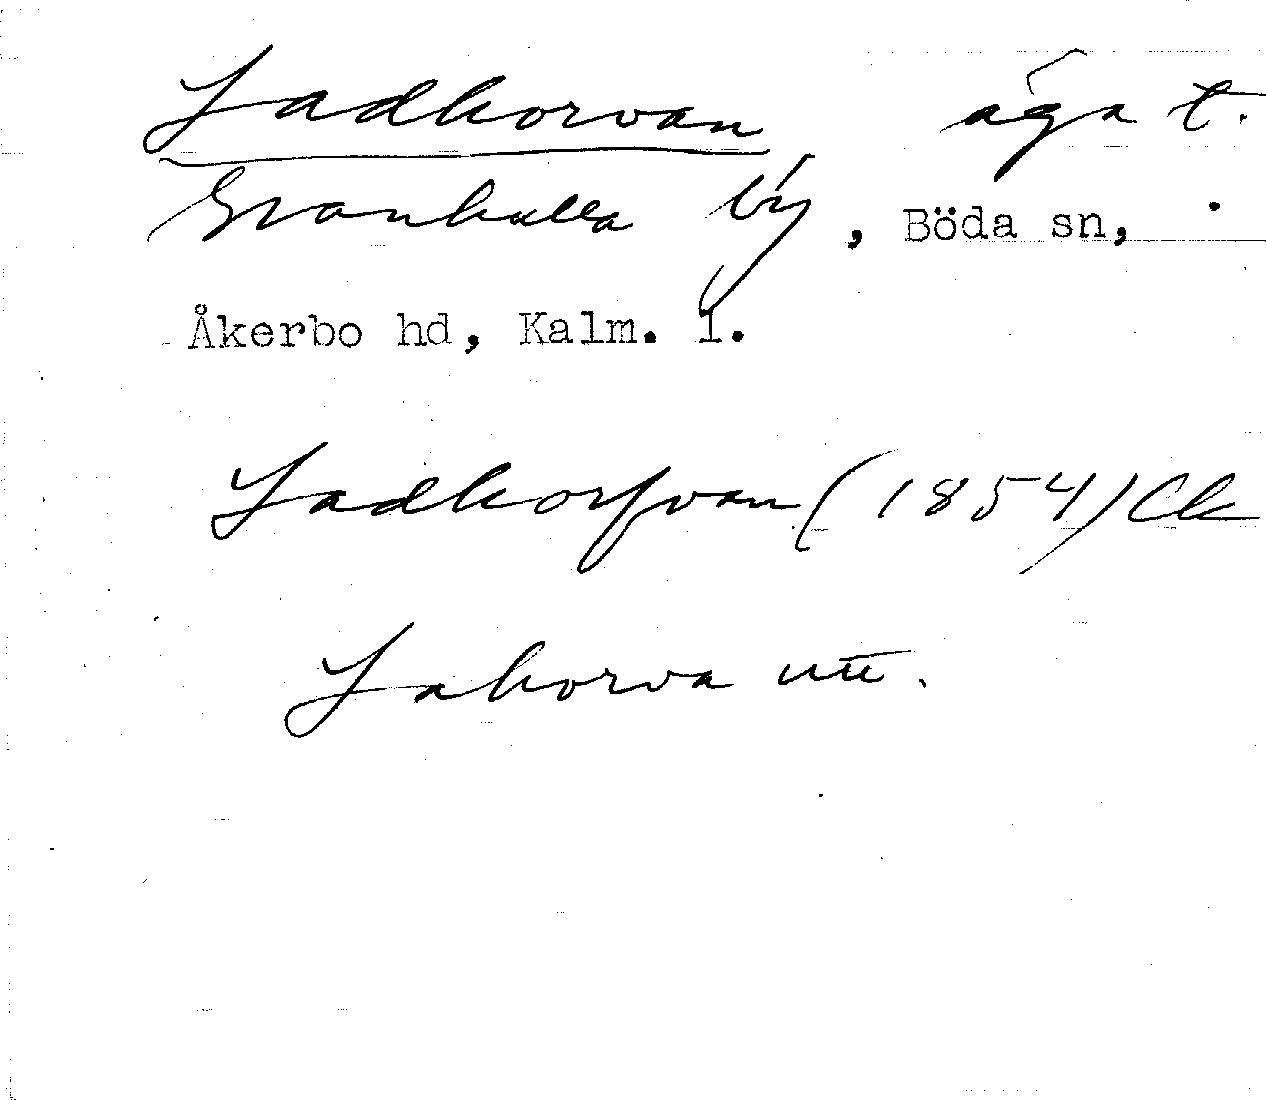 Ladkorvan äga t.
Grankulla by, Böda sn,
Åkerbo hd, Kalm. l.
Ladkorfvan (1854) Ck
Lakorva utt.